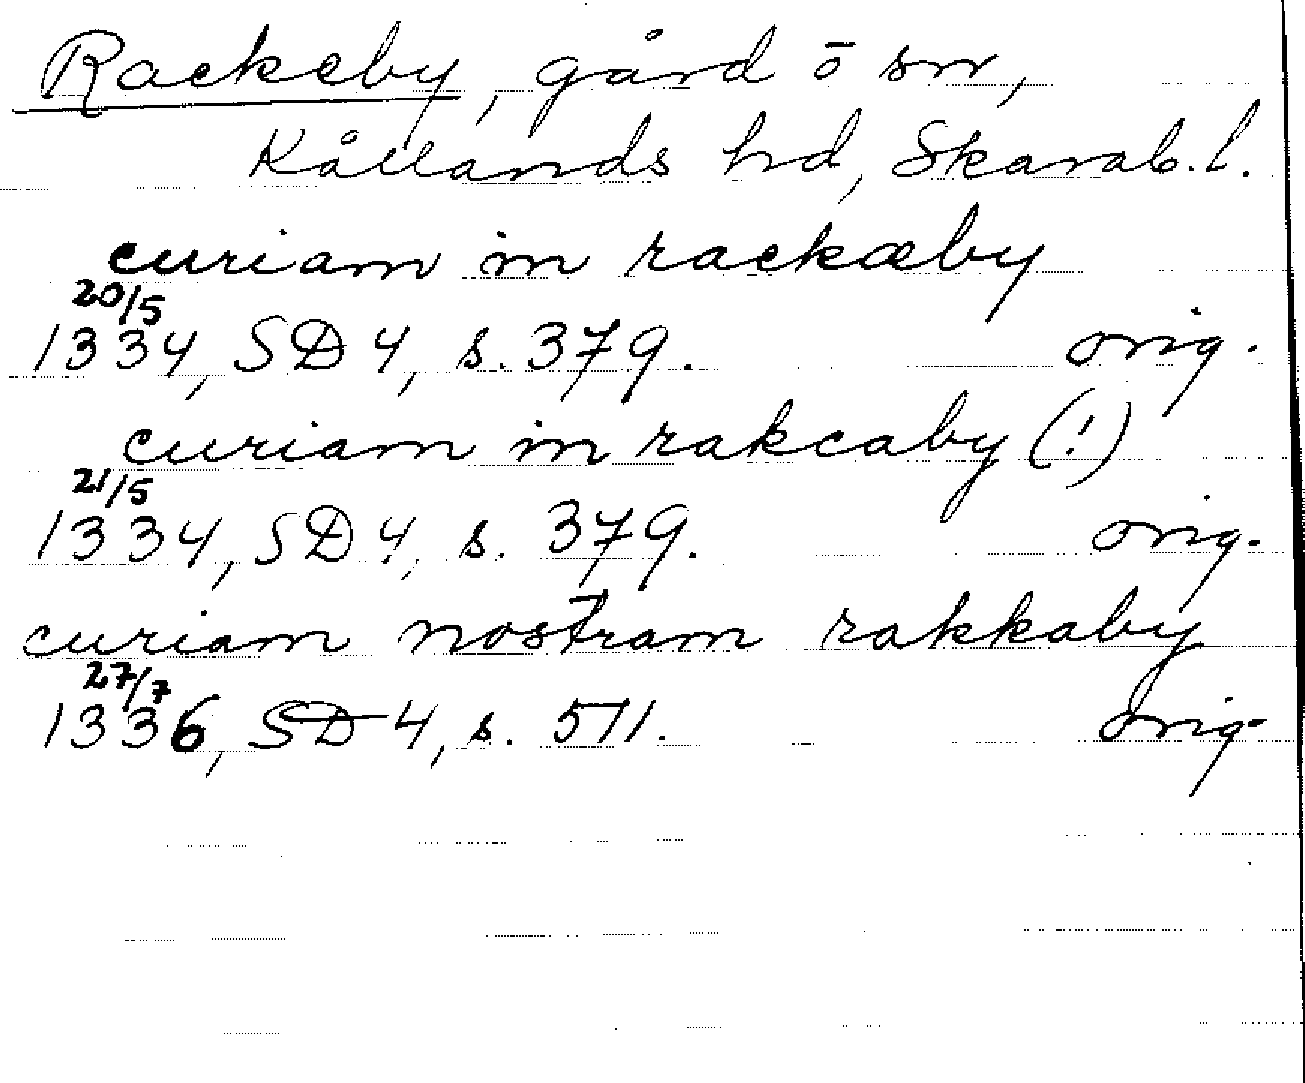 Rackeby, gård o sn,
Kållands hd, Skarab. l.
curiam in rackæby
20/5
1334, SD 4, s. 379. orig.
curiam in rakcaby (!)
21/5
1334, SD 4, s. 379. orig.
curiam nostram rakkaby
27/7
1336, SD 4, s. 511. orig.